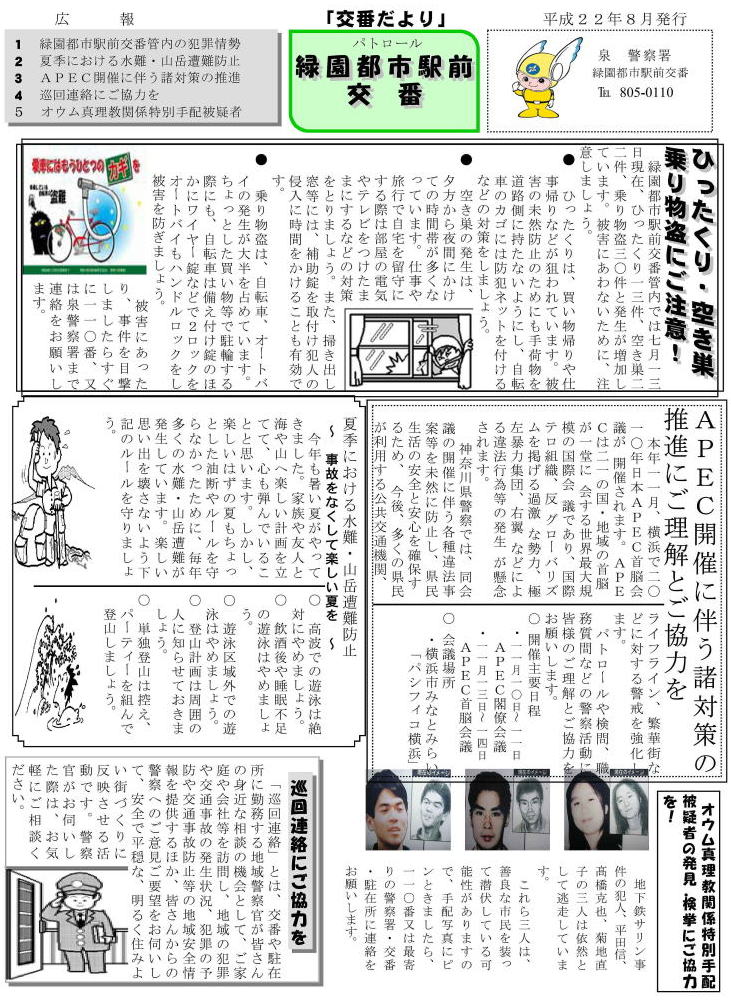 広　報
「交番だより」
平成２２年８月発行
1　緑園都市駅前交番管内の犯罪情勢
2　夏季における水難・山岳遭難防止
3　ＡＰＥＣ開催に伴う諸対策の推進
4　巡回連絡にご協力を
5　オウム真理教関係特別手配被疑者
パトロール
緑園都市駅前
交　番
泉　警察署
緑園都市駅前交番
℡　805-0110
ひったくり・空き巣
乗り物盗にご注意！
緑園都市駅前交番管内では七月一三
日現在、ひったくり一三件、空き巣二
二件、乗り物盗三〇件と発生が増加し
ています。被害にあわないために、注
意しましょう。
●　ひったくりは、買い物帰りや仕
事帰りなどが狙われています。被
害の未然防止のためにも手荷物を
道路側に持たないようにし、自転
車のカゴには防犯ネットを付ける
などの対策をしましょう。
●　空き巣の発生は、
夕方から夜間にかけ
ての時間帯が多くな
っています。仕事や
旅行で自宅を留守に
する際は部屋の電気
やテレビをつけたま
まにするなどの対策
をとりましょう。また、掃き出し
窓等には、補助錠を取付け犯人の
侵入に時間をかけることも有効で
す。
●　乗り物盗は、自転車、オートバ
イの発生が大半を占めています。
ちょっとした買い物等で駐輪する
際にも、自転車は備え付け錠のほ
かにワイヤー錠などで２ロックを
オートバイもハンドルロックをし
被害を防ぎましょう。
被害にあった
り、事件を目撃
しましたらすぐ
に一一〇番、又
は泉警察署まで
連絡をお願いし
ます。
乗車にはもうひとつのカギを
ＡＰＥＣ開催に伴う諸対策の
推進にご理解とご協力を
本年一一月、横浜で二〇
一〇年日本ＡＰＥＣ首脳会
議が開催されます。ＡＰＥ
Ｃは二一の国・地域の首脳
が一堂に会する世界最大規
模の国際会議であり、国際
テロ組織、反グローバリズ
ムを掲げる過激な勢力、極
左暴力集団、右翼などによ
る違法行為等の発生が懸念
されます。
神奈川県警察では、同会
議の開催に伴う各種違法事
案等を未然に防止し、県民
生活の安全と安心を確保す
るため、今後、多くの県民
が利用する公共交通機関、
ライフライン、繁華街な
どに対する警戒を強化し
ます。
パトロールや検問、職
務質問などの警察活動に
皆様のご理解とご協力を
お願いします。
○　開催主要日程
・一一月一〇日～一一日
ＡＰＥＣ閣僚会議
・一一月一三日～一四日
ＡＰＥＣ首脳会議
○　会議場所
・横浜市みなとみらい
「パシフィコ横浜」
夏季における水難・山岳遭難防止
～　事故をなくして楽しい夏を　～
今年も暑い夏がやって
きました。家族や友人と
海や山へ楽しい計画を立
てて、心も弾んでいるこ
とと思います。しかし、
楽しいはずの夏もちょっ
とした油断やルールを守
らなかったために、毎年
多くの水難・山岳遭難が
発生しています。楽しい
思い出を壊さないよう下
記のルールを守りましょ
う。
○　高波での遊泳は絶
対にやめましょう。
○　飲酒後や睡眠不足
の遊泳はやめましょ
う。
○　遊泳区域外での遊
泳はやめましょう。
○　登山計画は周囲の
人に知らせておきま
しょう。
○　単独登山は控え、
パーティーを組んで
登山しましょう。
オウム真理教関係特別手配
被疑者の発見・検挙にご協力
を！
地下鉄サリン事
件の犯人、平田信、
高橋克也、菊地直
子の三人は依然と
して逃走していま
す。
これら三人は、
善良な市民を装っ
て潜伏している可
能性がありますの
で、手配写真にピ
ンときましたら、
一一〇番又は最寄
りの警察署・交番
・駐在所に連絡を
お願いします。
巡回連絡にご協力を
「巡回連絡」とは、交番や駐在
所に勤務する地域警察官が皆さん
の身近な相談の機会として、ご家
庭や会社等を訪問し、地域の犯罪
や交通事故の発生状況、犯罪の予
防や交通事故防止等の地域安全情
報を提供するほか、皆さんからの
警察へのご意見ご要望をお伺いし
て、安全で平穏な、明るく住みよ
い街づくりに
反映させる活
動です。警察
官がお伺いし
た際は、お気
軽にご相談く
ださい。